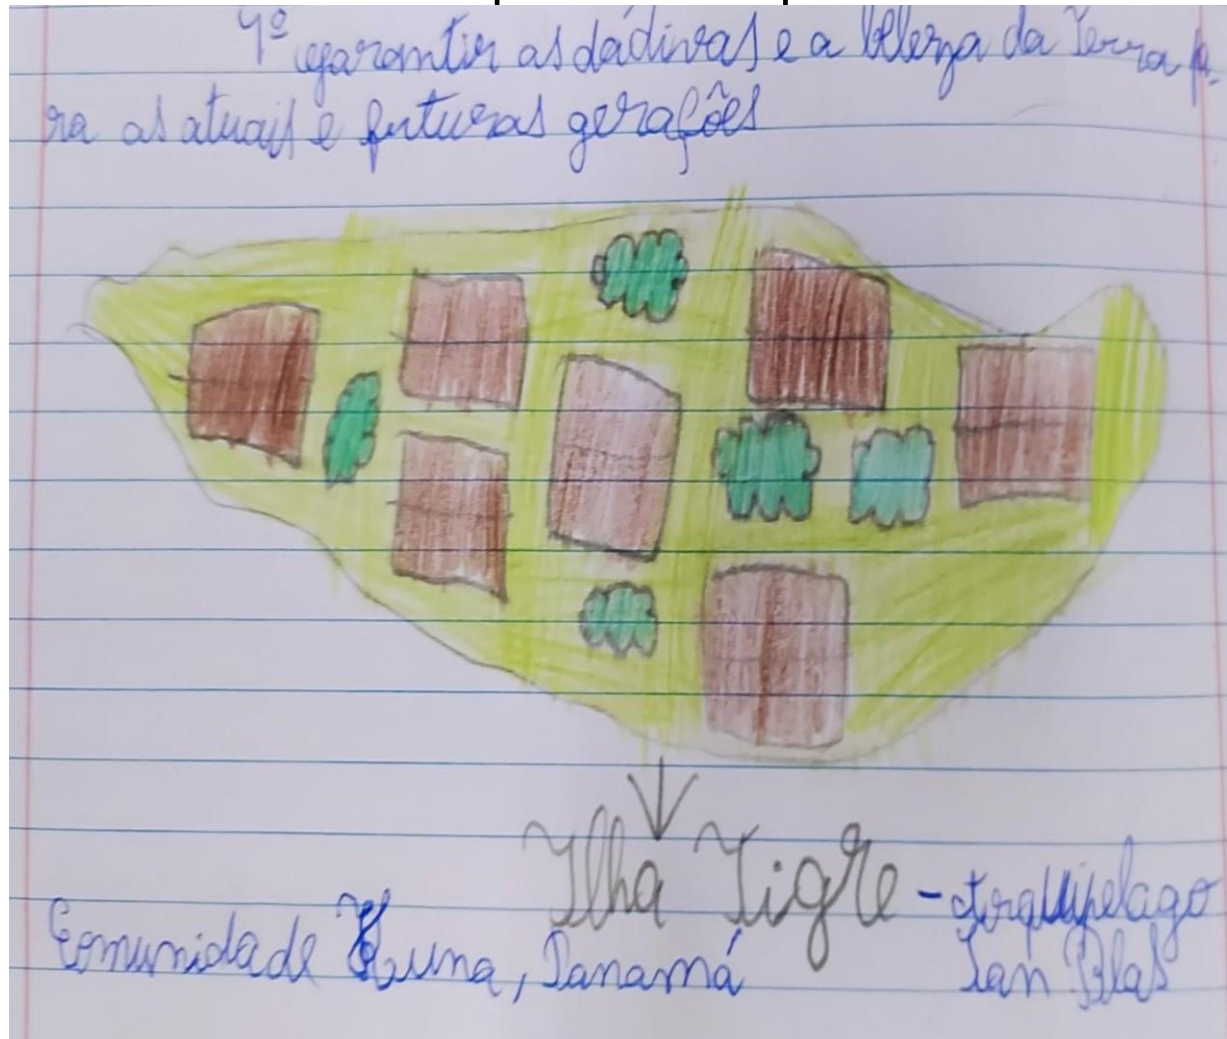 4º garantir as dádivas e a beleza da Terra pa-
ra as atuais e futuras gerações
Ilha Tigre - Arquipelago
San Blas
Comunidade Kuna, Panamá